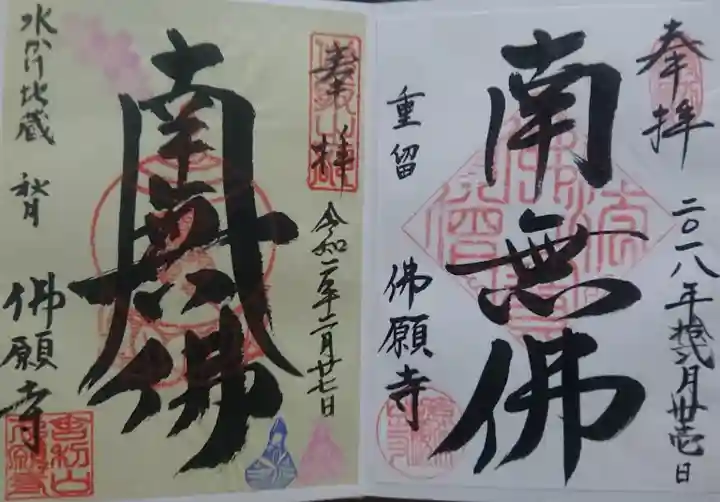 奉拝
二〇一八年拾弐月卅壱日
南無佛
重留
佛願寺
奉拝
令和二年二月廿七日
南無佛
水かけ地蔵 秋月
佛願寺